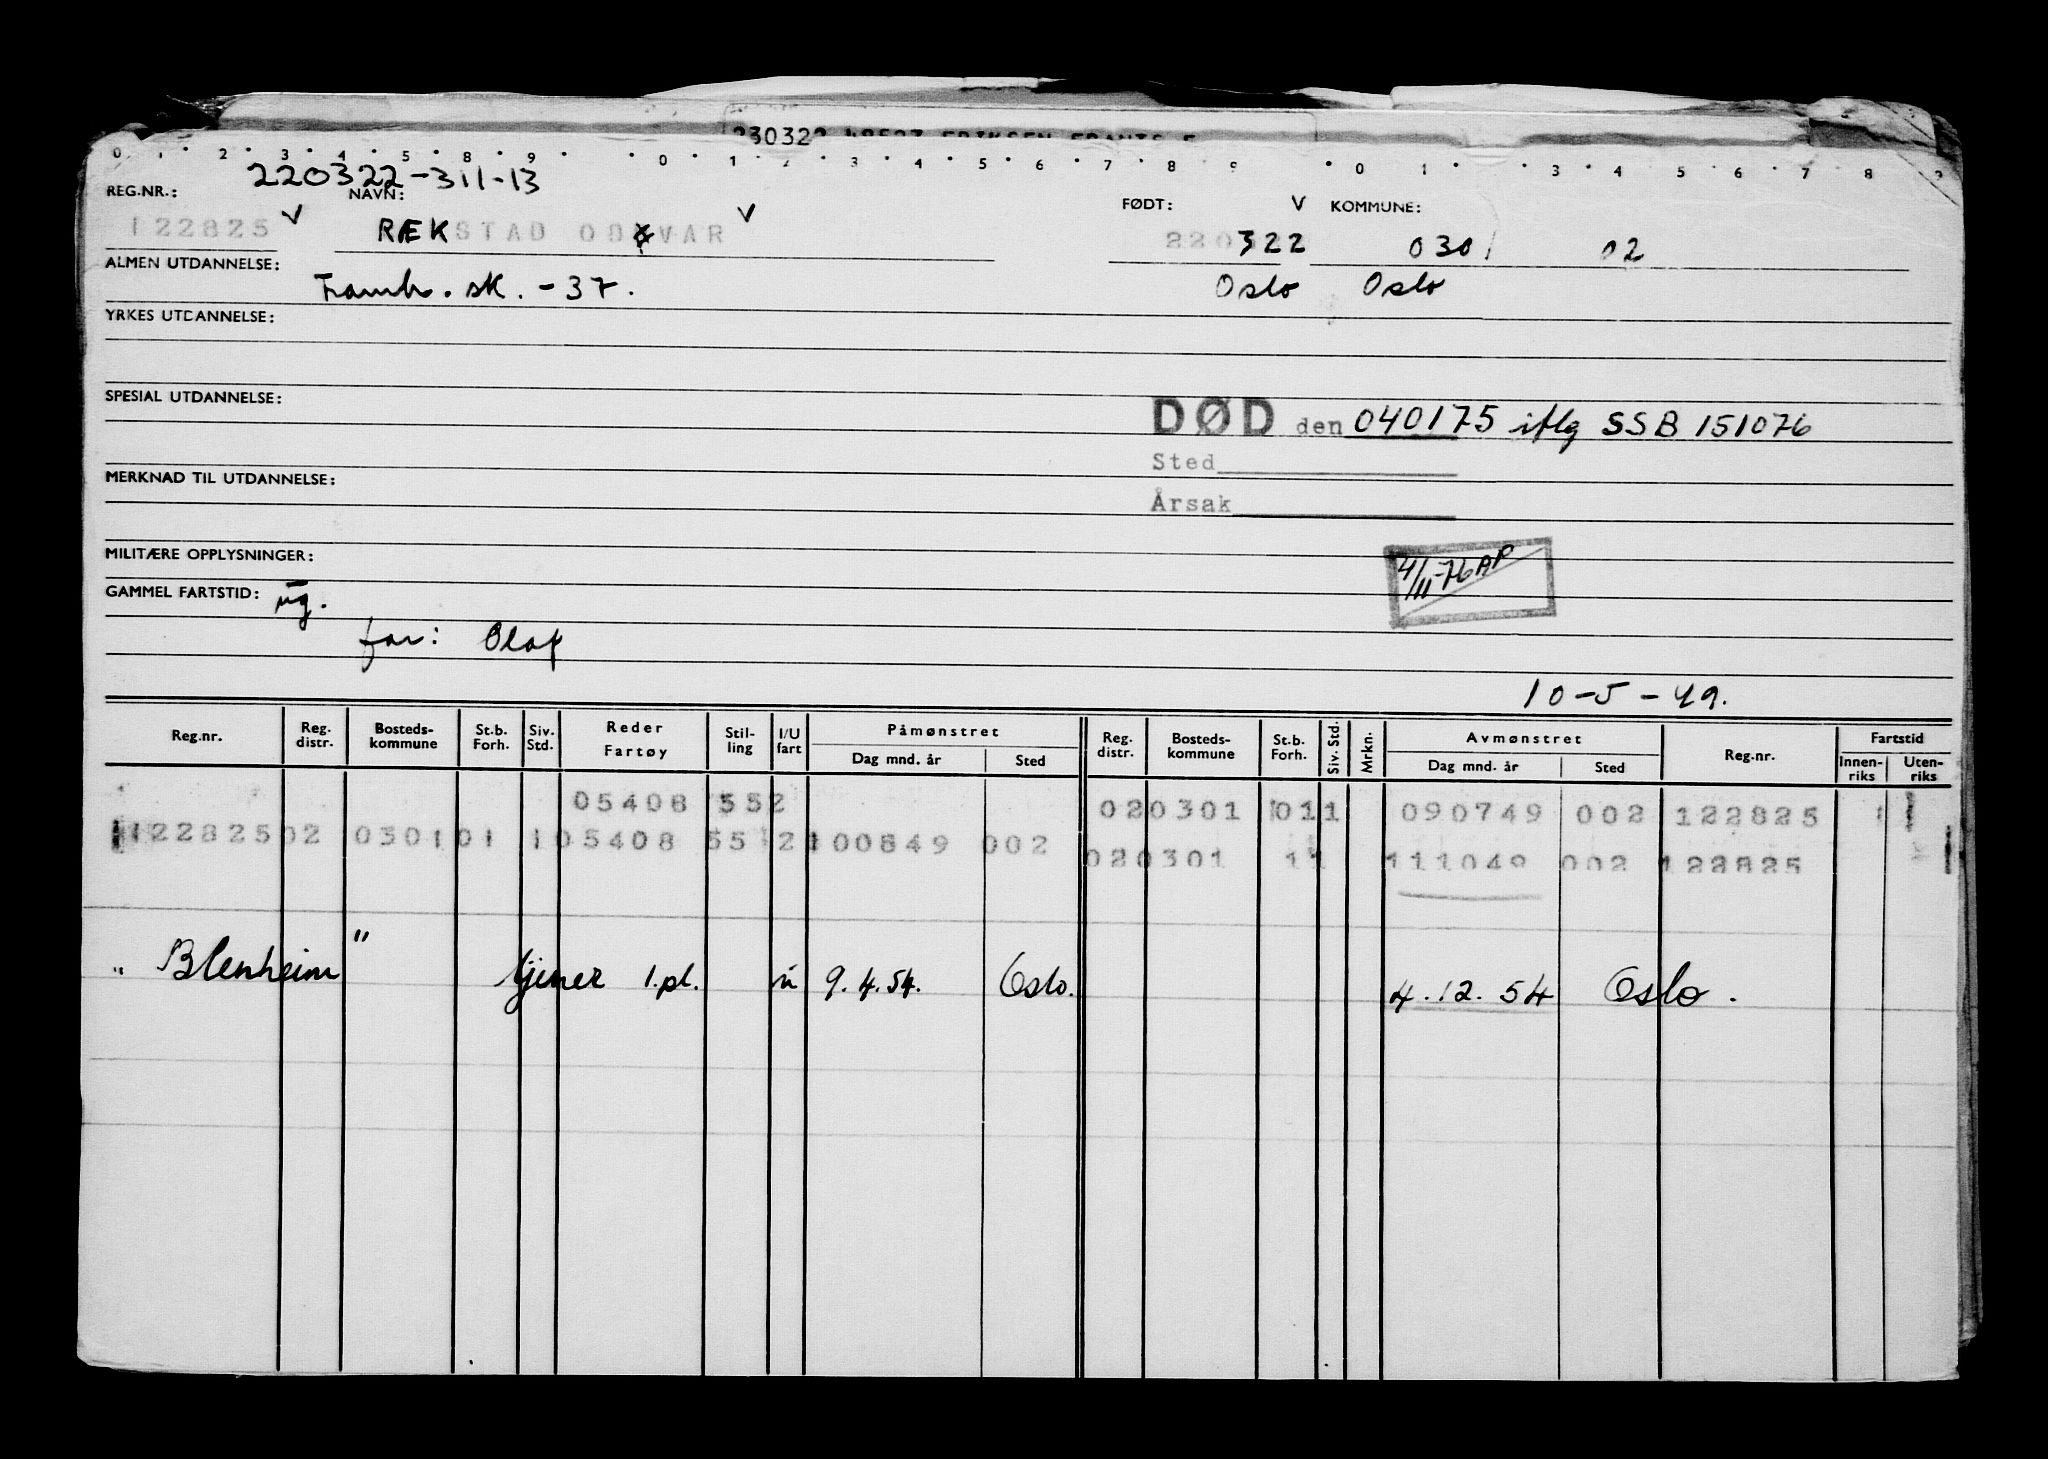 0 1 2 3 4 5 8 9 0 1 2 3 4 5 6 7 8 9 0 1 3 4 5 6 7 8
220322-311-13
REG.NR.: NAVN: FØDT: V KOMMUNE:
122825 V RÆKSTAD ODVAR V 220322 0301 02
ALMEN UTDANNELSE: Framh. sk. - 37. Oslo Oslo
YRKES UTDANNELSE:
SPESIAL UTDANNELSE:
DØD den 040175 iflg SSB 151076
Sted
MERKNAD TIL UTDANNELSE:
Årsak
MILITÆRE OPPLYSNINGER:
4/11-76 AP
GAMMEL FARTSTID:
far: Olaf
10-5-49.
Reg.nr. Reg. distr. Bosteds-kommune St.b. Forh. Siv. Std. Reder Fartøy Stil-ling I/U fart Påmønstret Dag mnd. år Sted Reg. distr. Bosteds-kommune St.b. Forh. Siv. Std. Mrkn. Avmønstret Dag mnd. år Sted Reg.nr. Fartstid Innen-riks Uten-riks
05408 552 020301 011 090749 002 122825
122825 02 0301 01 1 05408 55 2 100849 002 020301 11 111049 002 122825
"Blenheim" tjener 1.pl. u 9.4.54. Oslo. 4.12.54 Oslo.